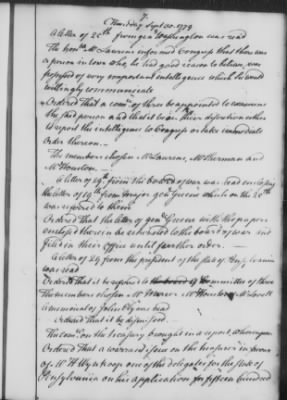 Thursday Sept 30. 1779
A letter of 26th from gen Washington was read
The honble Mr Laurens informed Congress that there was
a person in town who, he had good reason to believe, was
possessed of very important intelligence which he would
willingly communicate
Ordered That a comee of three be appointed to examine
the said person and that it be at their discretion either
to report the intelligence to Congress or take immediate
order thereon
The members chosen Mr Laurens, Mr Sherman and
Mr Houston
A letter of 29th from the board of war was read enclosing
the letter of 19th from major genl Greene which on the 25
was referred to them
Ordered That the letter of genl Greene with the papers
enclosed therein be returned to the board of war and
filed in their office until farther order
A letter of 29 from the president of the state of Pensylvania
was read
Ordered That it be referred to the board of Committee of three
The members chosen Mr Houston Mr Lovell
A memorial of John was read
Ordered That it be dismissed.
The comee on the treasury brought in a report, Whereupon
Ordered That a warrant issue on the treasurer in favour
of Mr H Wynkoop one of the delegates for the state of
Pensylvania on his application for fifteen hundred